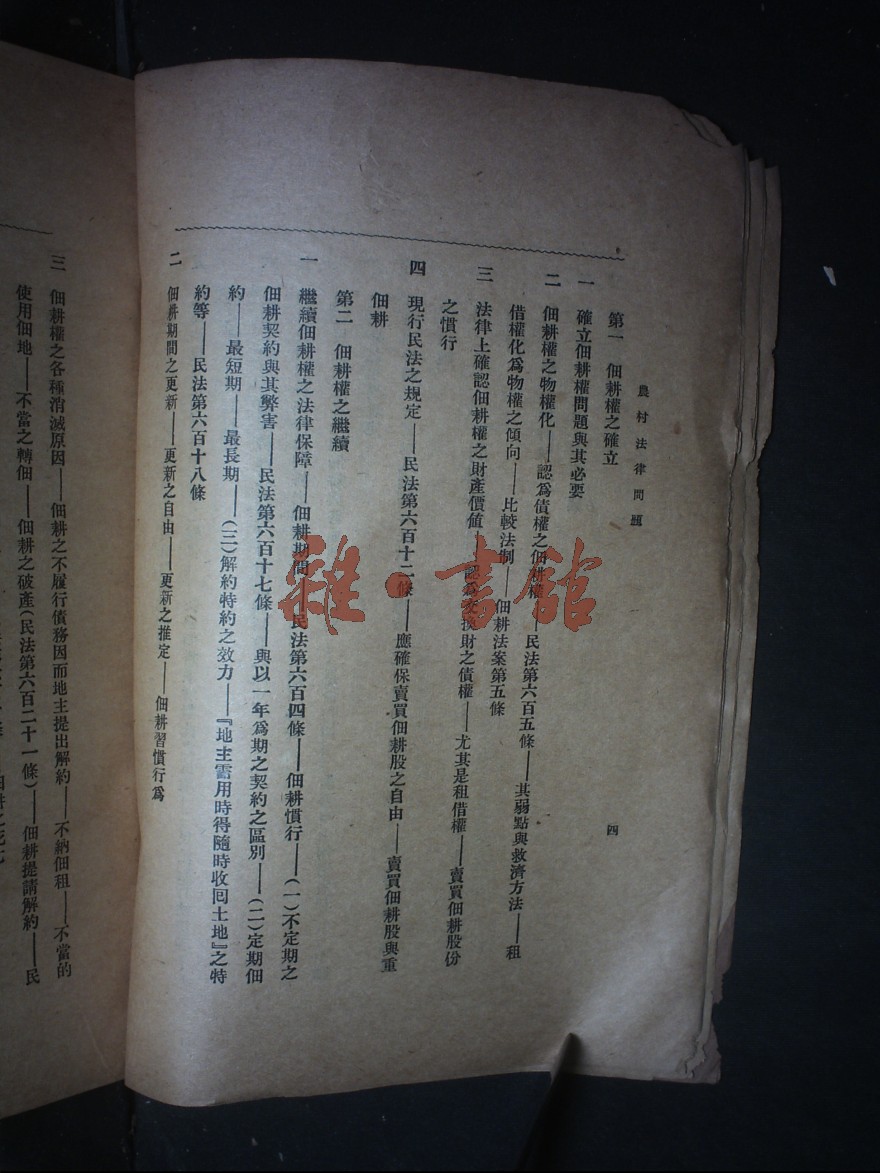 農村法律問題
四
第一　佃耕權之確立
一　確立佃耕權問題與其必要
二　佃耕權之物權化——認爲債權之佃耕權——民法第六百五條——其弱點與救濟方法——租
借權化爲物權之傾向——比較法制——佃耕法案第五條
三　法律上確認佃耕權之財產價値——認爲交換財之債權——尤其是租借權——賣買佃耕股份
之慣行
四　現行民法之規定——民法第六百十二條——應確保賣買佃耕股之自由——賣買佃耕股與重
佃耕
第二　佃耕權之繼續
一　繼續佃耕權之法律保障——佃耕期間——民法第六百四條——佃耕慣行——(一)不定期之
佃耕契約與其弊害——民法第六百十七條——與以一年爲期之契約之區別——(二)定期佃
約——最短期——最長期——(三)解約特約之效力——『地主需用時得隨時收囘土地』之特
約等——民法第六百十八條
二　佃耕期間之更新——更新之自由——更新之推定——佃耕習慣行爲
三　佃耕權之各種消滅原因——佃耕之不履行債務因而地主提出解約——不納佃租——不當的
使用佃地——不當之轉佃——佃耕之破產(民法第六百二十一條)——佃耕提請解約——民
雜·書館